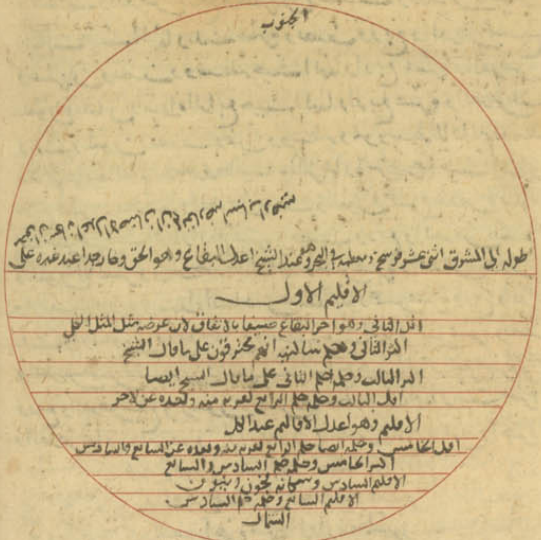 الجنوب
طوله الى المشرق اثنى عشر فرسخ ومعظمه في البحر وهو عند الشيخ اعدل البقاع وهو الحق وحار جدا عند غيره على
الاقليم الاول
اقل الثاني وهو احر البقاع صيفا بالاتفاق لان عرضه مثل الميل الكلي
اكثر الثاني وحكم ساكنيه انهم محترقون على ما قال الشيخ
اكثر الثالث وحكمه حكم الثاني على ما قال الشيخ ايضا
اقل الثالث وحكمه حكم الرابع لقربه منه ولبعده عن الاحر
الاقليم وهو اعدل الاقاليم عند الكل
اقل الخامس وحكمه ايضا حكم الرابع لقربه منه وبعده عن السابع والسادس
اكثر الخامس وحكمه حكم السادس والسابع
الاقليم السادس وسكانه فجون
الاقليم السابع وحكمه حكم السادس
الشمال